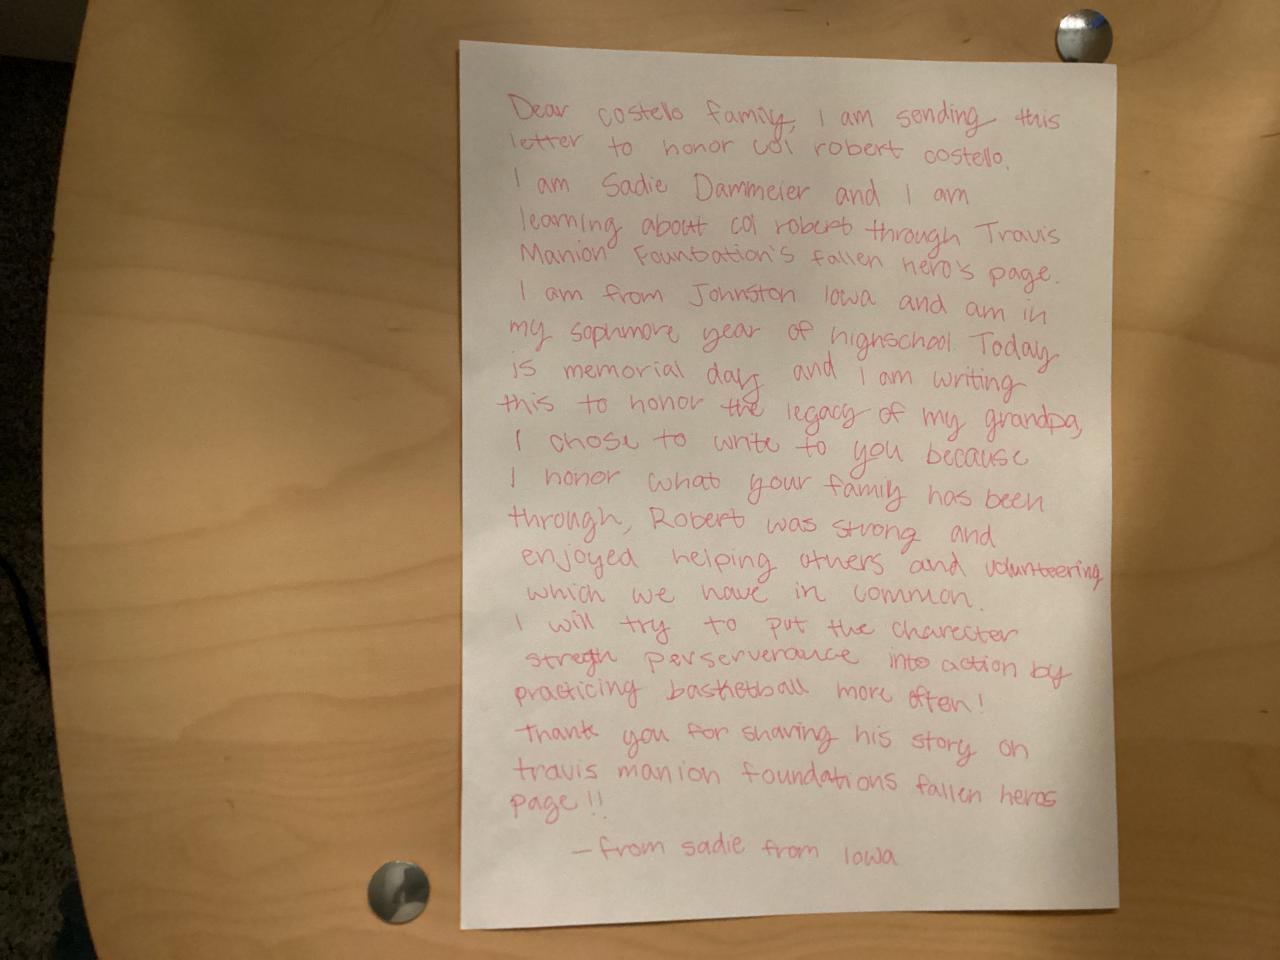 Dear costello family, I am sending this
letter to honor col robert costello.
I am Sadie Dammeier and I am
learning about col robert through Travis
Manion Founbation's fallen hero's page.
I am from Johnston Iowa and am in
my sophmore year of highschool. Today
is memorial day and I am writing
this to honor the legacy of my grandpa,
I chose to write to you because
I honor what your family has been
through, Robert was strong and
enjoyed helping others and volunteering
which we have in common.
I will try to put the charecter
stregh perserverance into action by
practicing basketball more often!
Thank you for sharing his story on
travis manion foundations fallen heros
page!!
- from sadie from Iowa